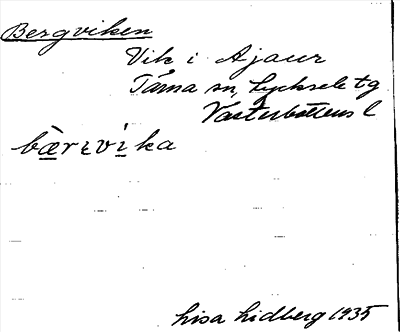 Bergviken
Vik i Ajaur
Tärna sn, Lycksele tg
Västerbottens l
bæ̀rɩvìka
Lisa Lidberg 1935